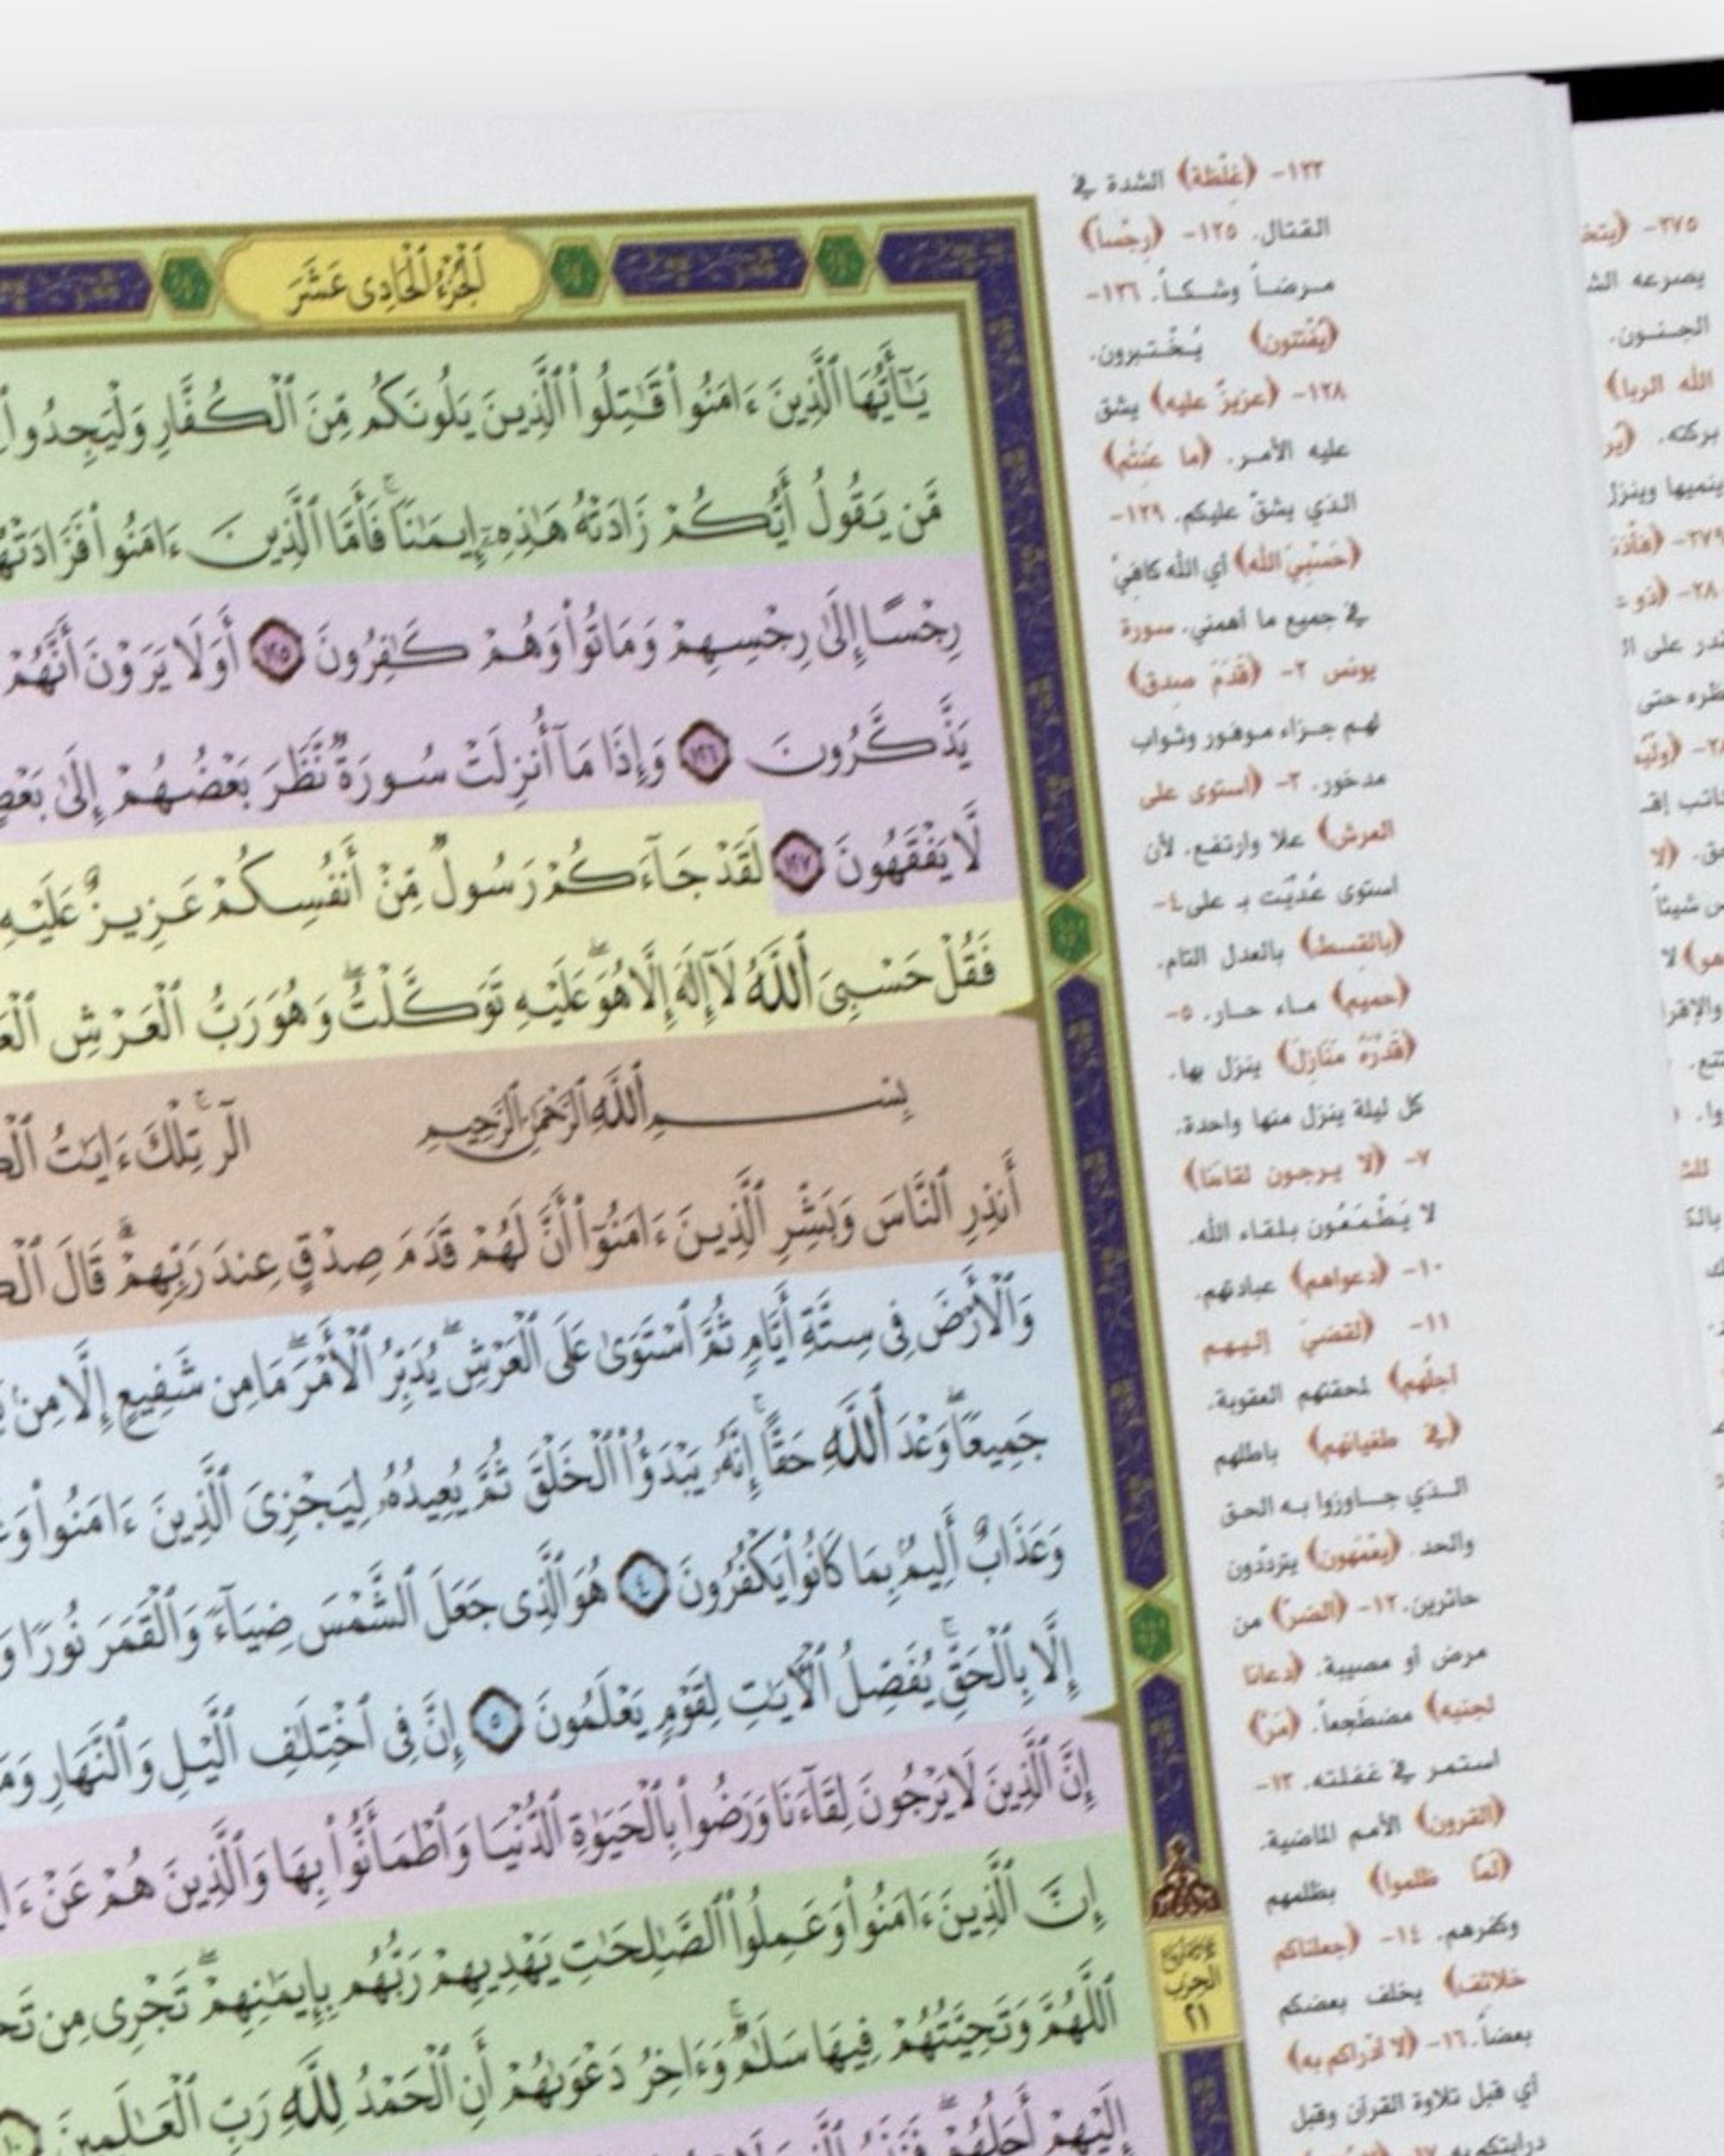 ٱلْجُزْءُ ٱلْحَادِى عَشَرَ
يَـٰٓأَيُّهَا ٱلَّذِينَ ءَامَنُوا۟ قَـٰتِلُوا۟ ٱلَّذِينَ يَلُونَكُم مِّنَ ٱلْكُفَّارِ وَلْيَجِدُوا۟
مَّن يَقُولُ أَيُّكُمْ زَادَتْهُ هَـٰذِهِۦٓ إِيمَـٰنًا ۚ فَأَمَّا ٱلَّذِينَ ءَامَنُوا۟ فَزَادَتْهُ
رِجْسًا إِلَىٰ رِجْسِهِمْ وَمَاتُوا۟ وَهُمْ كَـٰفِرُونَ ١٢٥ أَوَلَا يَرَوْنَ أَنَّهُمْ
يَذَّكَّرُونَ ١٢٦ وَإِذَا مَآ أُنزِلَتْ سُورَةٌ نَّظَرَ بَعْضُهُمْ إِلَىٰ بَعْضٍ
لَّا يَفْقَهُونَ ١٢٧ لَقَدْ جَآءَكُمْ رَسُولٌ مِّنْ أَنفُسِكُمْ عَزِيزٌ عَلَيْهِ
فَقُلْ حَسْبِىَ ٱللَّهُ لَآ إِلَـٰهَ إِلَّا هُوَ ۖ عَلَيْهِ تَوَكَّلْتُ ۖ وَهُوَ رَبُّ ٱلْعَرْشِ
بِسْمِ ٱللَّهِ ٱلرَّحْمَـٰنِ ٱلرَّحِيمِ الٓر ۚ تِلْكَ ءَايَـٰتُ
أَنذِرِ ٱلنَّاسَ وَبَشِّرِ ٱلَّذِينَ ءَامَنُوٓا۟ أَنَّ لَهُمْ قَدَمَ صِدْقٍ عِندَ رَبِّهِمْ ۗ قَالَ
وَٱلْأَرْضَ فِى سِتَّةِ أَيَّامٍ ثُمَّ ٱسْتَوَىٰ عَلَى ٱلْعَرْشِ ۖ يُدَبِّرُ ٱلْأَمْرَ ۖ مَا مِن شَفِيعٍ إِلَّا مِنۢ
جَمِيعًا ۖ وَعْدَ ٱللَّهِ حَقًّا ۚ إِنَّهُۥ يَبْدَؤُا۟ ٱلْخَلْقَ ثُمَّ يُعِيدُهُۥ لِيَجْزِىَ ٱلَّذِينَ ءَامَنُوا۟
وَعَذَابٌ أَلِيمٌۢ بِمَا كَانُوا۟ يَكْفُرُونَ ٤ هُوَ ٱلَّذِى جَعَلَ ٱلشَّمْسَ ضِيَآءً وَٱلْقَمَرَ نُورًا
إِلَّا بِٱلْحَقِّ ۚ يُفَصِّلُ ٱلْـَٔايَـٰتِ لِقَوْمٍ يَعْلَمُونَ ٥ إِنَّ فِى ٱخْتِلَـٰفِ ٱلَّيْلِ وَٱلنَّهَارِ
إِنَّ ٱلَّذِينَ لَا يَرْجُونَ لِقَآءَنَا وَرَضُوا۟ بِٱلْحَيَوٰةِ ٱلدُّنْيَا وَٱطْمَأَنُّوا۟ بِهَا وَٱلَّذِينَ هُمْ عَنْ
إِنَّ ٱلَّذِينَ ءَامَنُوا۟ وَعَمِلُوا۟ ٱلصَّـٰلِحَـٰتِ يَهْدِيهِمْ رَبُّهُم بِإِيمَـٰنِهِمْ ۖ تَجْرِى مِن
ٱللَّهُمَّ وَتَحِيَّتُهُمْ فِيهَا سَلَـٰمٌ ۚ وَءَاخِرُ دَعْوَىٰهُمْ أَنِ ٱلْحَمْدُ لِلَّهِ رَبِّ ٱلْعَـٰلَمِينَ
إِلَيْهِمْ أَجَلُهُمْ ۖ
الحزب
٢١
١٢٣- ﴿غِلْظة﴾ الشدة في
القتال. ١٢٥- ﴿رِجْساً﴾
مرضاً وشكاً. ١٢٦-
﴿يُفْتنون﴾ يُخْتبرون.
١٢٨- ﴿عزيزٌ عليه﴾ يشق
عليه الأمر. ﴿ما عَنِتُّم﴾
الذي يشقّ عليكم. ١٢٩-
﴿حَسْبِيَ الله﴾ أي الله كافيَّ
في جميع ما أهمني. سورة
يونس ٢- ﴿قَدَمَ صدق﴾
لهم جزاء موفور وثواب
مدخور. ٣- ﴿استوى على
العرش﴾ علا وارتفع. لأن
استوى عُدِّيَت بـ على ٤-
﴿بالقسط﴾ بالعدل التام.
﴿حميم﴾ ماء حار. ٥-
﴿قدَّرَهُ مَنَازِلَ﴾ ينزل بها.
كل ليلة ينزل منها واحدة.
٧- ﴿لا يرجون لقاءنا﴾
لا يَطْمَعُون بلقاء الله.
١٠- ﴿دعواهم﴾ عبادتهم.
١١- ﴿لقضيَ إليهم
أجلُهم﴾ لمحقتهم العقوبة.
﴿في طغيانهم﴾ باطلهم
الذي جاوزوا به الحق
والحد. ﴿يعْمَهون﴾ يتردّدون
حائرين. ١٢- ﴿الضرّ﴾ من
مرض أو مصيبة. ﴿دعانا
لجنبه﴾ مضطجعاً. ﴿مَرّ﴾
استمر في غفلته. ١٣-
﴿القرون﴾ الأمم الماضية.
﴿لمّا ظلموا﴾ بظلمهم
وكفرهم. ١٤- ﴿جعلناكم
خلائف﴾ يخلف بعضكم
بعضاً. ١٦- ﴿لا أدراكم به﴾
أي قبل تلاوة القرآن وقبل
درايتكم به.
٢٧٥-
يصرعه
الجنون.
الله الربا﴾
بركته.
ينميها وينزل
٢٧٩-
على
حتى